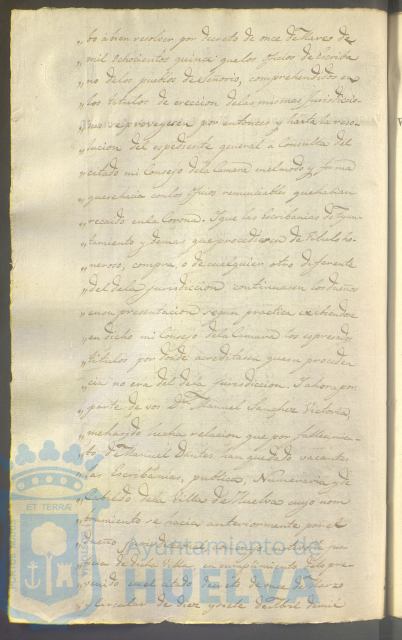 „bo a bien resolver por decreto de once de Marzo de
„mil ochocientos quince que los oficios de Escriba
„no de los pueblos de Señorio, comprehendidos en
„los titulos de ereccion de las mismas Jurisdiccio
„nes se proveyesen por entonces y hasta la reso
„lucion del espediente general a Consulta del
„citado mi Consejo de la Camara en el modo y forma
„que se hacia con los oficios renunciables que habian
„recaido en la Corona. Y que las Escribanias de Ayun
„tamiento y demas que procediesen de titulo ho
„neroso, compra, o de cualquier otro diferente
„del de la jurisdiccion continuasen los dueños
„en su presentacion segun practica exhibiendo
„en dicho mi Consejo de la Camara los espresados
„titulos por donde acreditasen que su proceden
„cia no era del de la jurisdiccion. Y ahora por
„parte de vos Dn. Manuel Sanchez Victoria,
„me ha sido hecha relacion que por fallecimien
„to de Manuel han quedado vacantes
„las Escribanias, publica, Numeraria y de
„Cabildo de la Villa de Huelva cuyo nom
„bramiento se hacia anteriormente por el
„dueño jurisdiccional
de dicha Villa, en cumplimiento de lo pre
„venido en el citado decreto de once de Marzo
„y circular de diez y siete de Abril de mil
ET TERRÆ
Ayuntamiento de
HUELVA